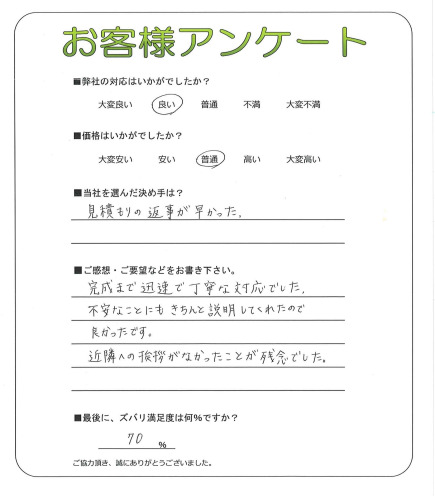 お客様アンケート
■弊社の対応はいかがでしたか?
大変良い 良い 普通 不満 大変不満
■価格はいかがでしたか?
大変安い 安い 普通 高い 大変高い
■当社を選んだ決め手は?
見積もりの返事が早かった.
■ご感想・ご要望などをお書き下さい。
完成まで迅速で丁寧な対応でした.
不安なことにもきちんと説明してくれたので
良かったです。
近隣への挨拶がなかったことが残念でした。
■最後に、ズバリ満足度は何%ですか?
70 %
ご協力頂き、誠にありがとうございました。